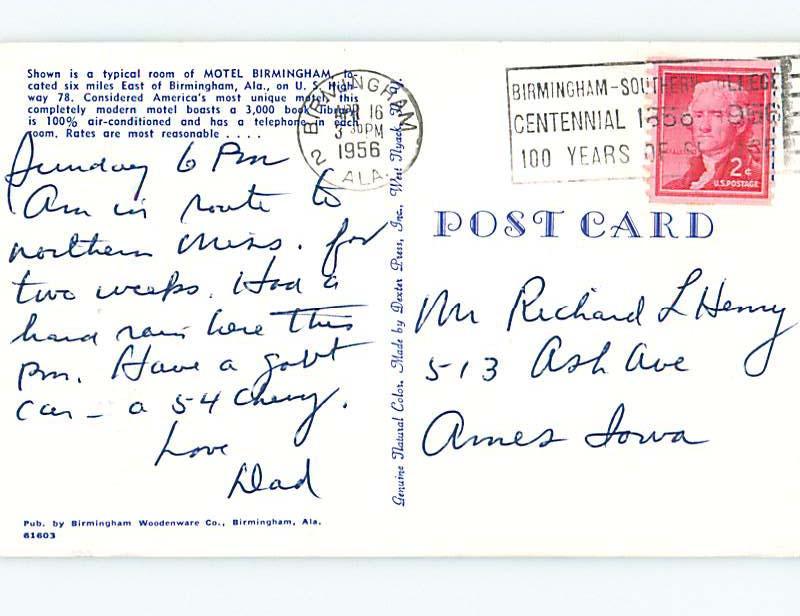 Shown is a typical room of MOTEL BIRMINGHAM, lo-
cated six miles East of Birmingham, Ala., on U. S. High-
way 78. Considered America's most unique motel, this
completely modern motel boasts a 3,000 book library,
is 100% air-conditioned and has a telephone in each
room. Rates are most reasonable . . . .
Sunday 6 Pm
Am in route to
northern Miss. for
two weeks. Had a
hard rain here this
pm. Have a gov't
car - a 54 Chevy.
Love
Dad
Pub. by Birmingham Woodenware Co., Birmingham, Ala.
61603
Genuine Natural Color. Made by Dexter Press, Inc., West Nyack, N.Y.
BIRMINGHAM
2
APR 16
3 30 PM
1956
ALA.
BIRMINGHAM-SOUTHERN COLLEGE
CENTENNIAL 1856 1956
100 YEARS OF
2¢
U.S. POSTAGE
POST CARD
Mr Richard L Henry
513 Ash Ave
Ames Iowa